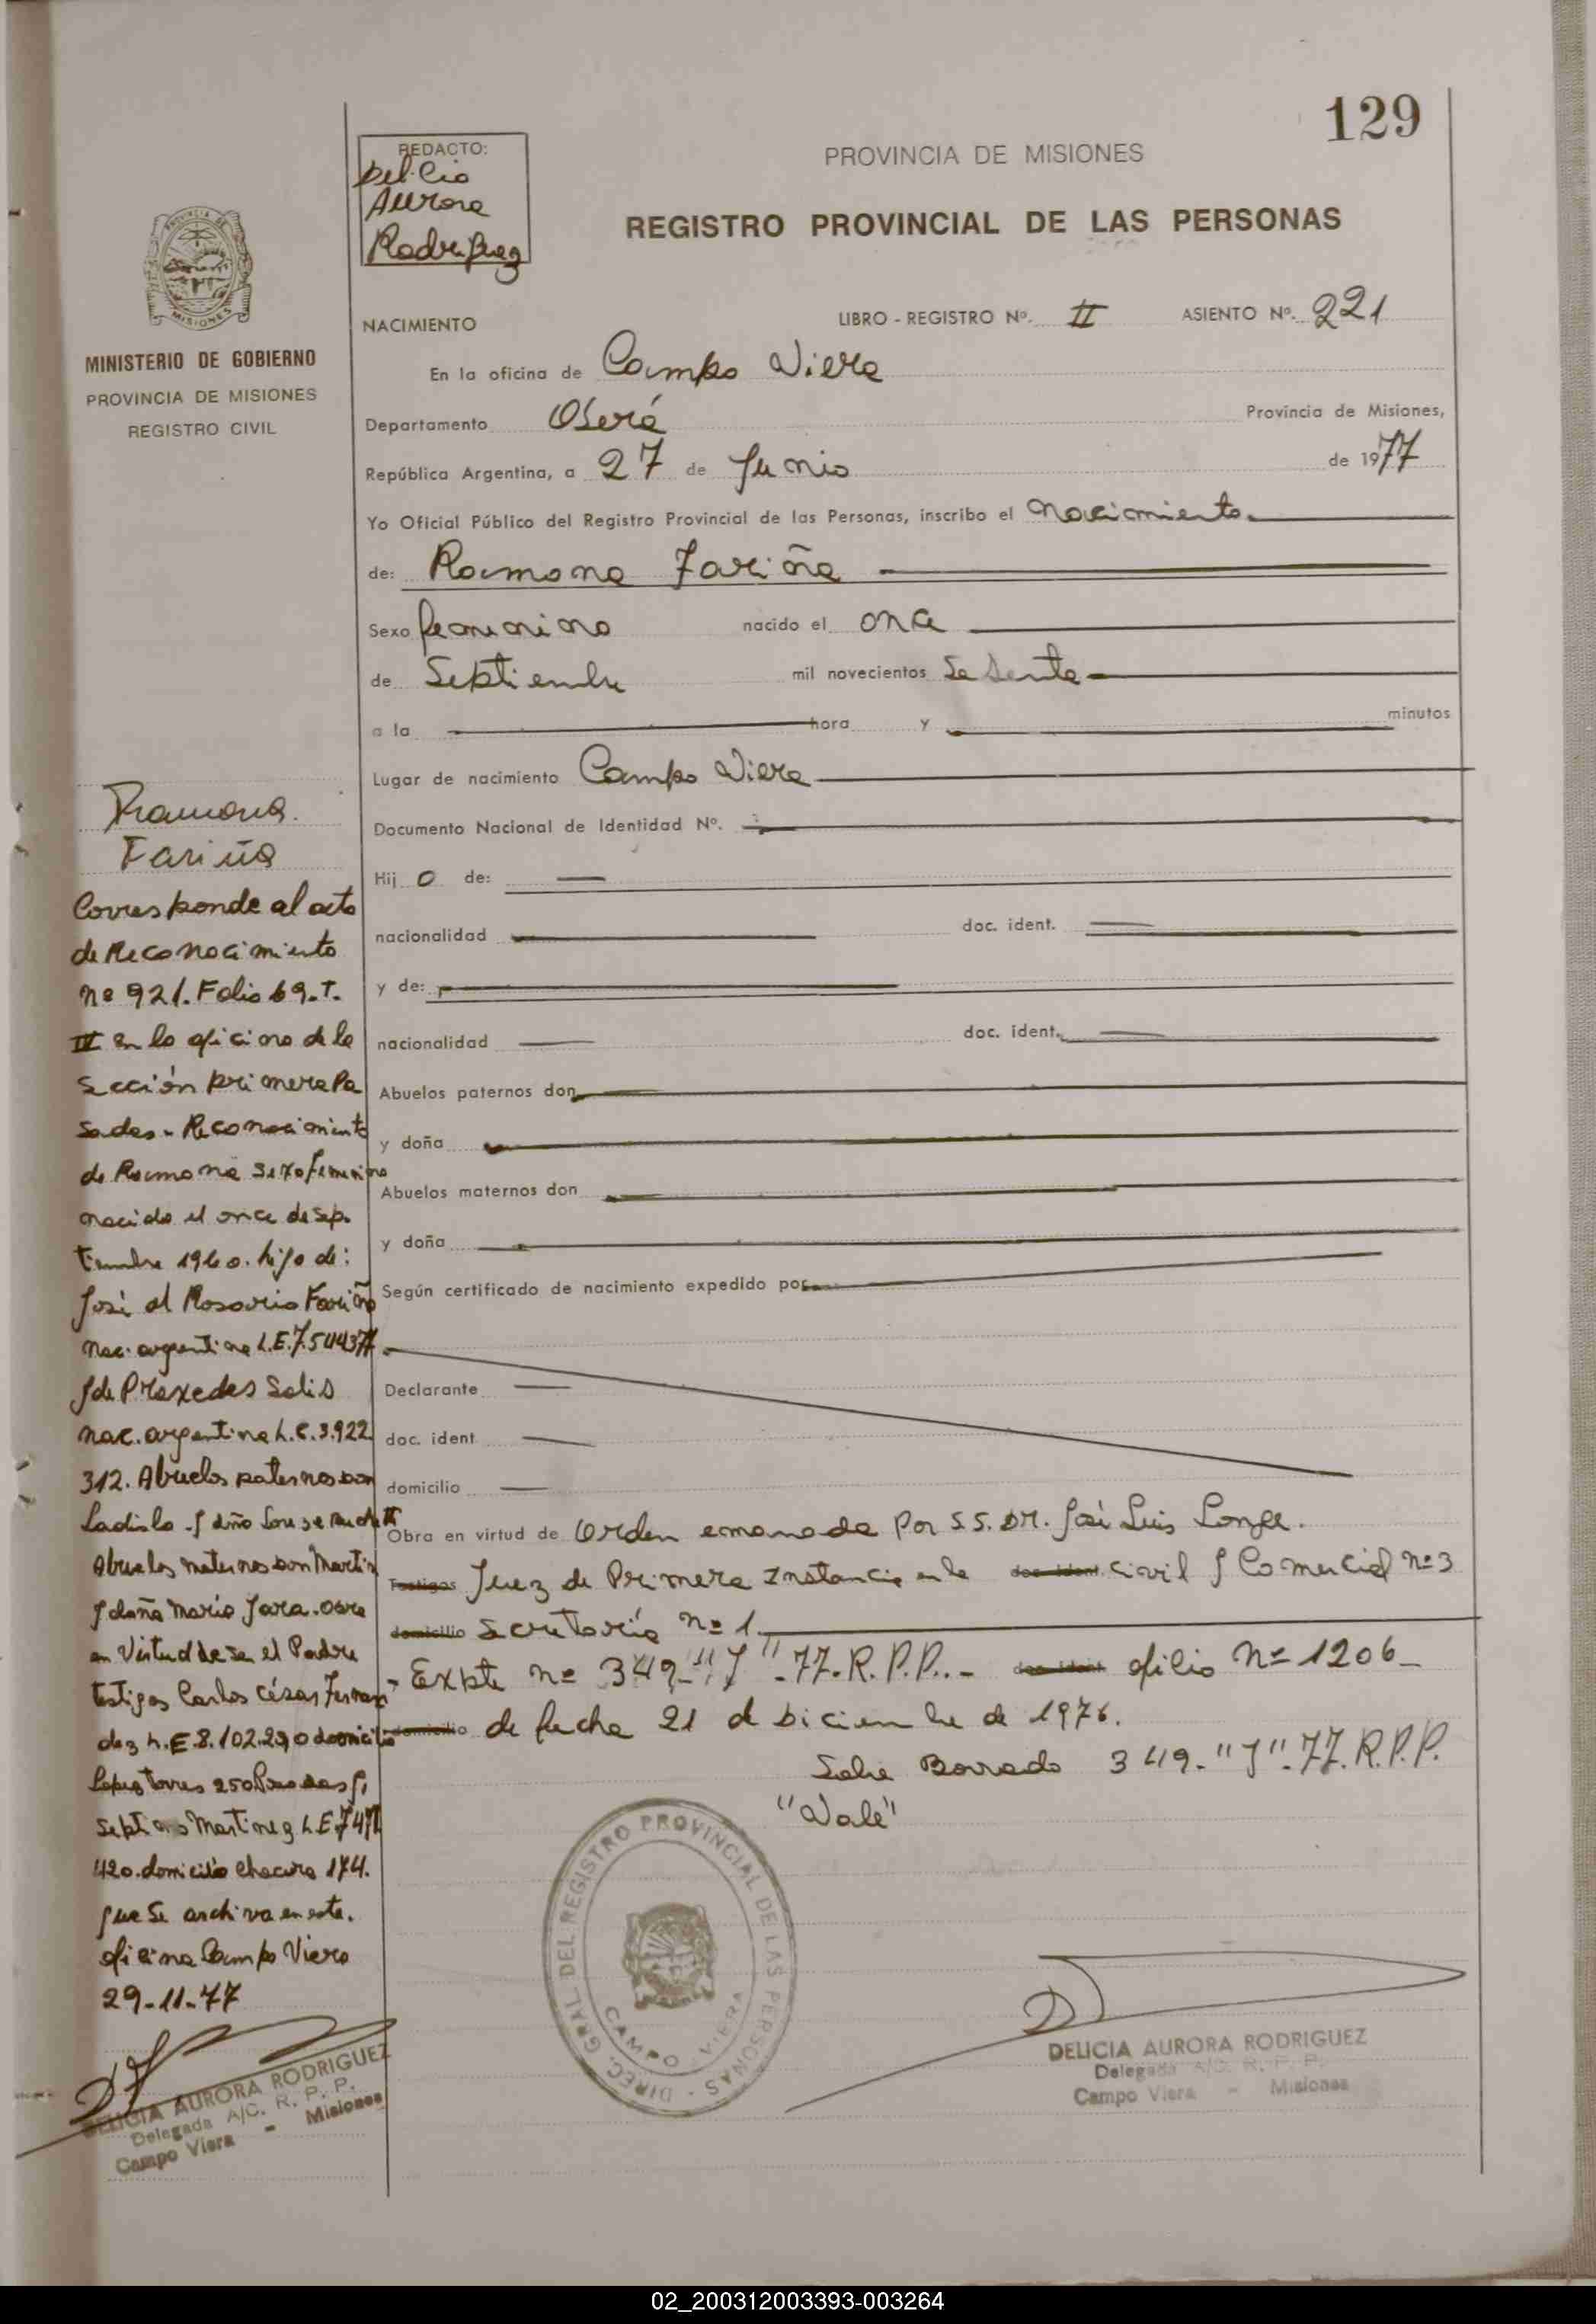 129
REDACTO:
Delicia
Aurora
Rodriguez
PROVINCIA DE MISIONES
REGISTRO PROVINCIAL DE LAS PERSONAS
MINISTERIO DE GOBIERNO
PROVINCIA DE MISIONES
REGISTRO CIVIL
NACIMIENTO LIBRO - REGISTRO Nº. II ASIENTO Nº. 221
En la oficina de Campo Viera
Departamento Oberá Provincia de Misiones,
República Argentina, a 27 de Junio de 1977
Yo Oficial Público del Registro Provincial de las Personas, inscribo el Nacimiento
de: Ramona Fariña
Sexo femenino nacido el once
de Septiembre mil novecientos Sesenta
a la hora y minutos
Lugar de nacimiento Campo Viera
Documento Nacional de Identidad Nº.
Hij o de:
nacionalidad doc. ident.
y de:
nacionalidad doc. ident.
Abuelos paternos don
y doña
Abuelos maternos don
y doña
Según certificado de nacimiento expedido por
Declarante
doc. ident
domicilio
Obra en virtud de Orden emanada por S.S. DR. José Luis Longe.
Testigos Juez de Primera Instancia en la doc. ident. Civil y Comercial nº 3
domicilio Secretaría nº 1.
- Expte nº 349-"J"-77-R.P.P.. - doc. ident. ofisio Nº 1206-
domicilio de fecha 21 d Diciembre de 1976.
Sobre Borrado 349-"J"-77.R.P.P.
"Vale"
Ramona
Fariña
Corresponde al acto
de Reconocimiento
nº 921. Folio 69. T.
III en la oficina de la
Sección primera Po
sadas - Reconocimiento
de Ramona sexo femenino
nacido el once de sep.
tiembre 1960. hijo de:
José del Rosario Fariña
nac. argentina L.E. 7.544377
y de Praxedes Solis
nac. argentina L.C. 3.922
312. Abuelos paternos don
Ladislo - y doña
Abuelos maternos don Martin
y doña María Jara. Obra
en Virtud de ser el Padre
testigos Carlos César Fernan
dez L.E. 8.102.290 domicilio
Lopez Torres 250 Posadas y
Martinez L.E. 7471
420. domicilio Chacra 174.
que se archiva en esta.
oficina Campo Viera
29-11-77
DELICIA AURORA RODRIGUEZ
Delegada A/C. R. P. P.
Campo Viera - Misiones
DIREC. GRAL DEL REGISTRO PROVINCIAL DE LAS PERSONAS -
CAMPO VIERA
DELICIA AURORA RODRIGUEZ
Delegada A/C. R. P. P.
Campo Viera - Misiones
02_200312003393-003264